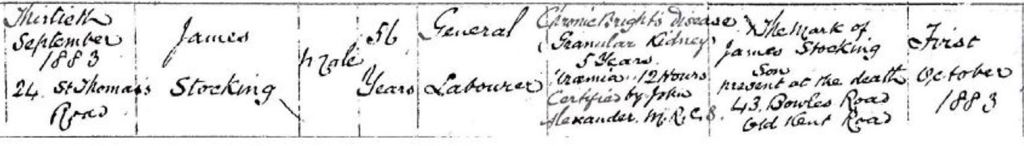 Thirtieth
September
1883
24 St Thomas's
Road
James
Stocking
Male
56
Years
General
Labourer
Chronic Bright's disease
(Granular Kidney)
5 Years.
Uraemia 12 Hours
Certified by John
Alexander. M.R.C.S.
X The Mark of
James Stocking
Son
present at the death
43. Bowles Road
Old Kent Road
First
October
1883